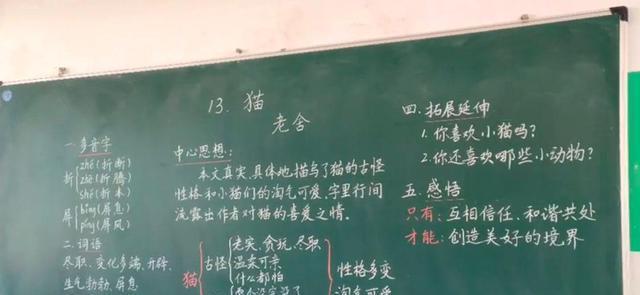 13. 猫
老舍
一.多音字
折
zhé(折断)
zhē(折腾)
shé(折本)
屏
bǐng(屏息)
píng(屏风)
二.词语
尽职、变化多端、开辟、
生气勃勃、屏息
中心思想:
本文真实、具体地描写了猫的古怪
性格和小猫们的淘气可爱,字里行间
流露出作者对猫的喜爱之情。
猫
古怪
老实、贪玩、尽职
温柔可亲
什么都怕
性格多变
淘气可爱
四.拓展延伸
1.你喜欢小猫吗?
2.你还喜欢哪些小动物?
五.感悟
只有:互相信任、和谐共处
才能:创造美好的境界